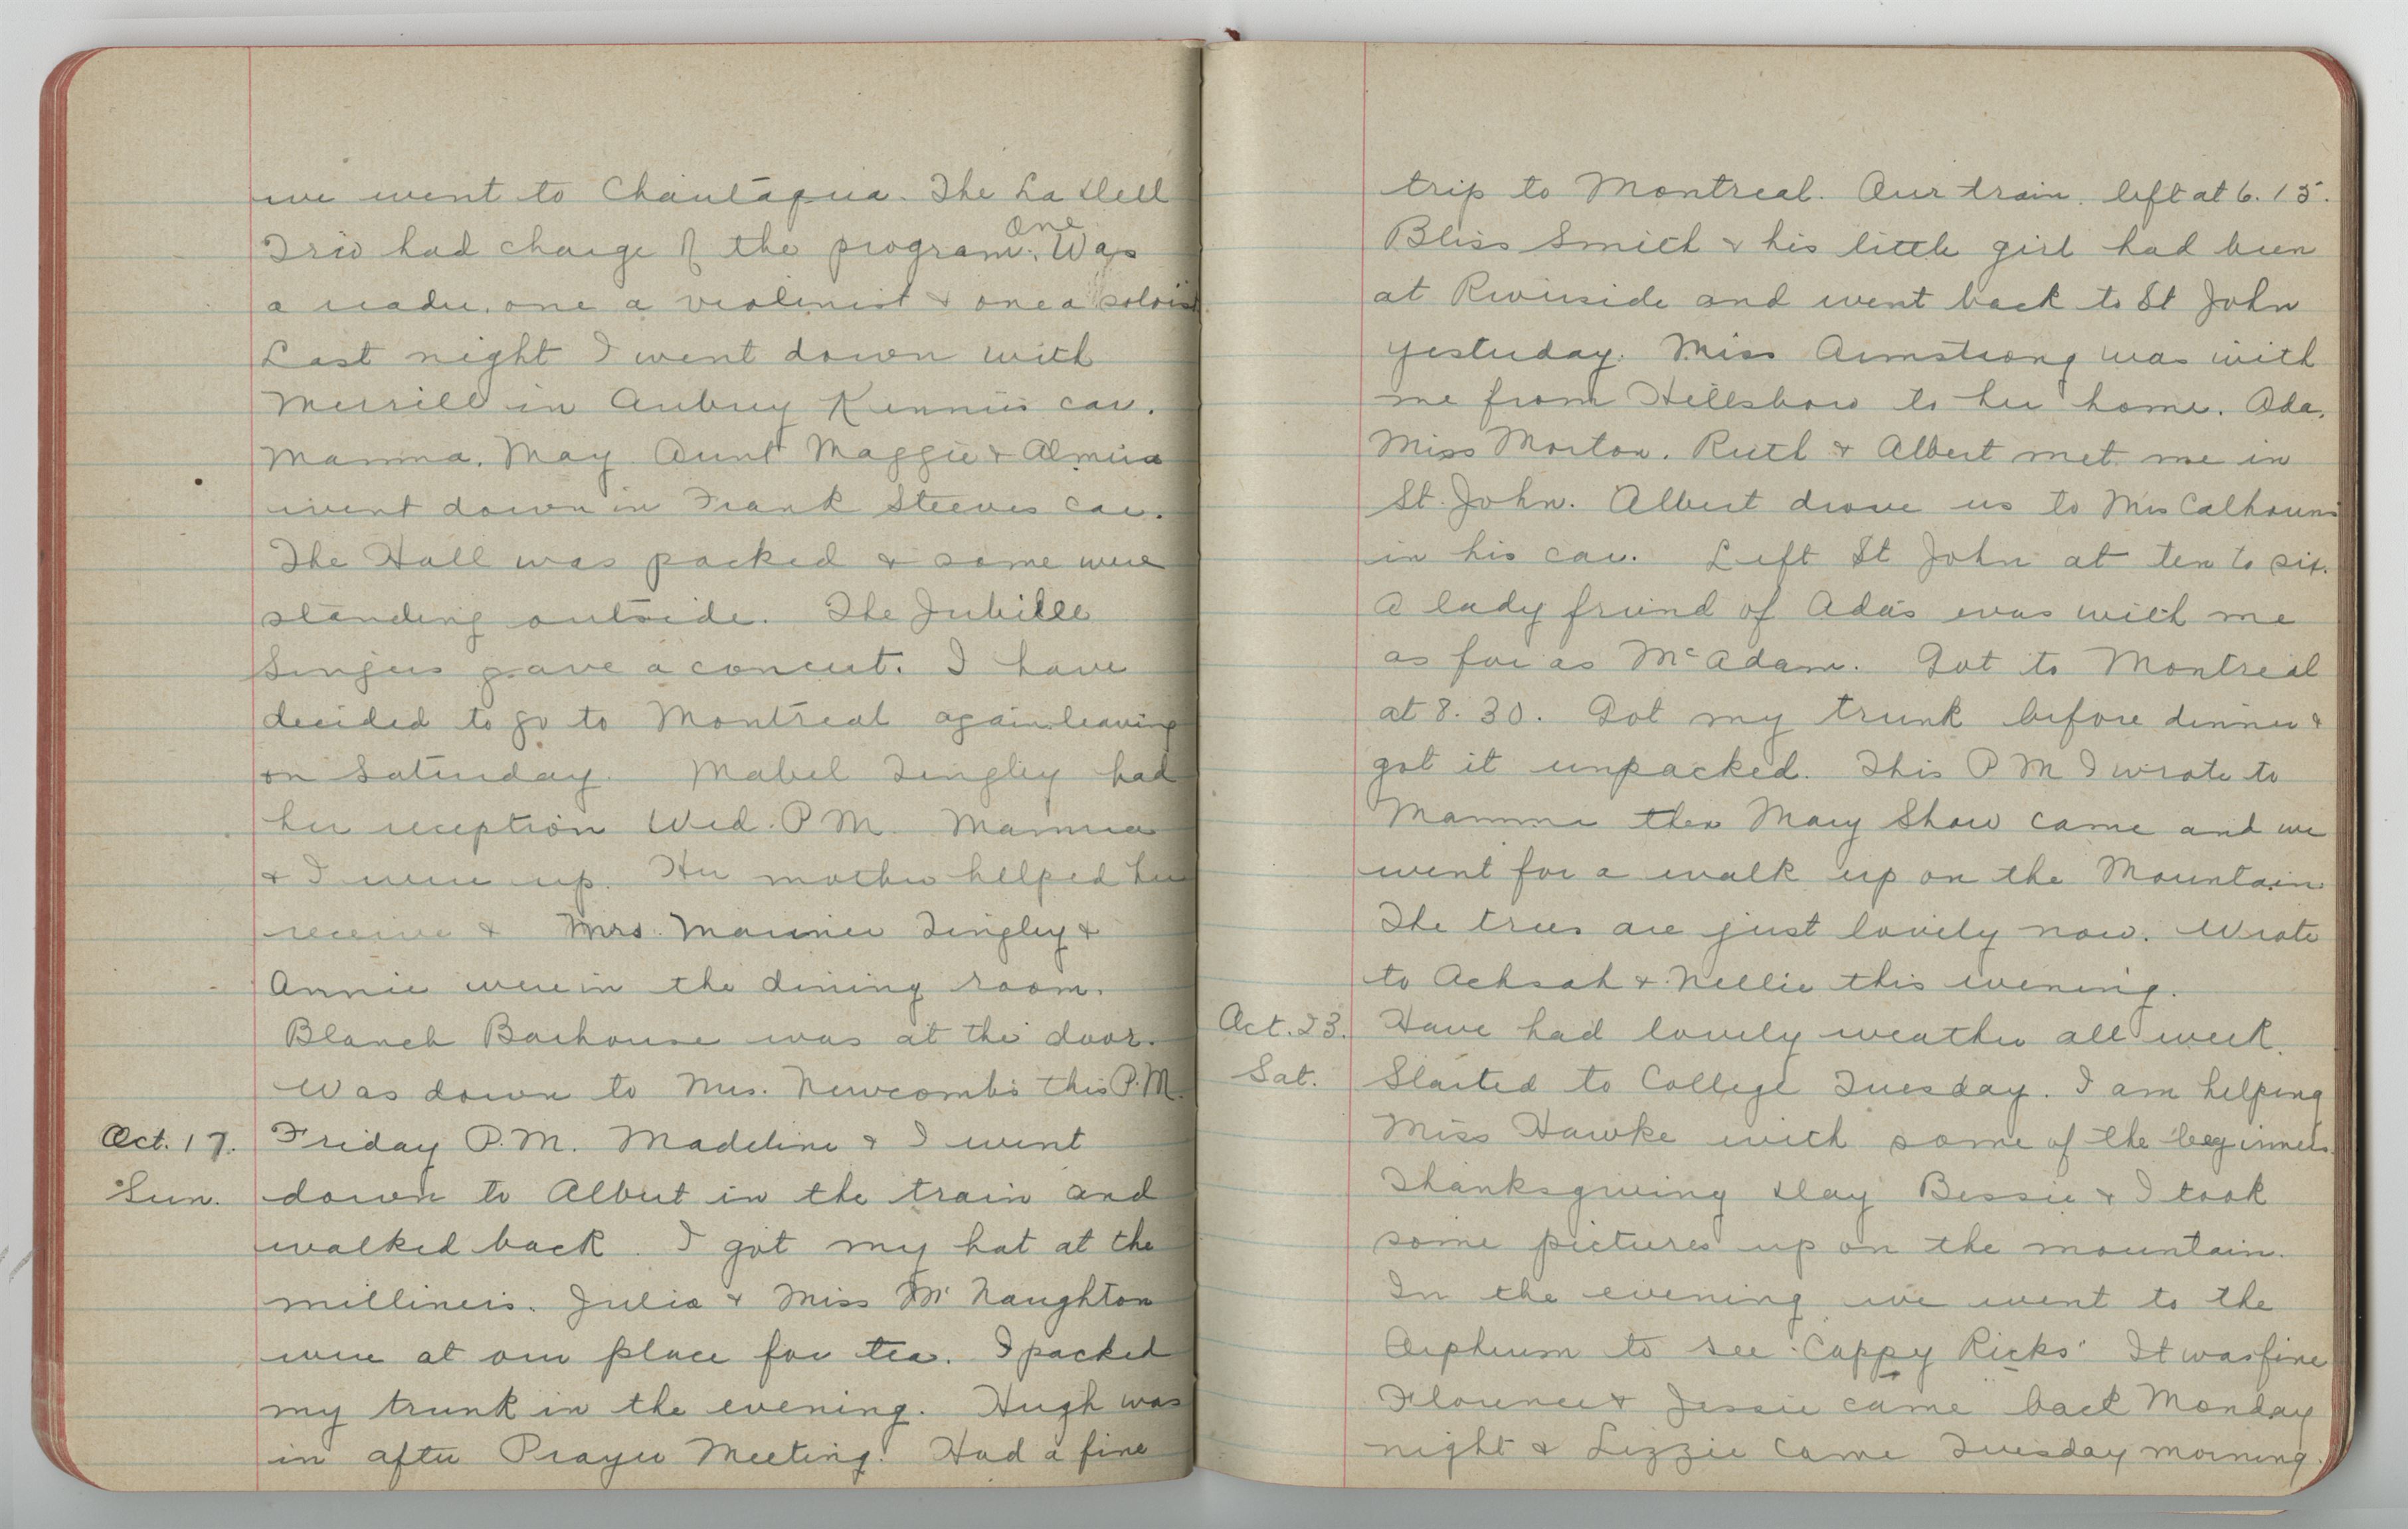 we went to Chautaqua. The La Dell
Trio had charge of the program. One Was
a reader, one a violinist & one a soloist
Last night I went down with
Merrill in Aubrey Kennies car.
Mamma, May Aunt Maggie & Almira
went down in Frank Steeves car.
The Hall was packed & some were
standing outside. The Jubilee
Singers gave a concert. I have
decided to go to Montreal again leaving
on Saturday. Mabel Tingley had
her reception Wed. P M. Mamma
& I were up. Her mother helped her
receive & Mrs. Mariner Tingley &
Annie were in the dining room.
Blanch Barhouse was at the door.
Was down to Mrs. Newcombs this P.M.
Oct. 17. Friday P.M. Madeline & I went
Sun. down to Albert in the train and
walked back. I got my hat at the
milliners. Julia & Miss Mc Naughton
were at our place for tea. I packed
my trunk in the evening. Hugh was
in after Prayer Meeting. Had a fine
trip to Montreal. Our train left at 6.15.
Bliss Smith & his little girl had been
at Riverside and went back to St John
yesterday. Miss Armstrong was with
me from Hillsboro to her home. Ada,
Miss Morton, Ruth & Albert met me in
St. John. Albert drove us to Mrs Calhouns
in his car. Left St John at ten to six.
A lady friend of Ada's was with me
as far as McAdam. Got to Montreal
at 8.30. Got my trunk before dinner &
got it unpacked. This P M I wrote to
Mamma then Mary Shaw came and we
went for a walk up on the Mountain
The trees are just lovely now. Wrote
to Achsah & Nellie this evening.
Oct. 23. Have had lovely weather all week.
Sat. Started to College Tuesday. I am helping
Miss Hawke with some of the beginners.
Thanksgiving Day Bessie & I took
some pictures up on the mountain.
In the evening we went to the
Orpheum to see "Cappy Ricks" It was fine
Florence & Jessie came back Monday
night & Lizzie came Tuesday morning.